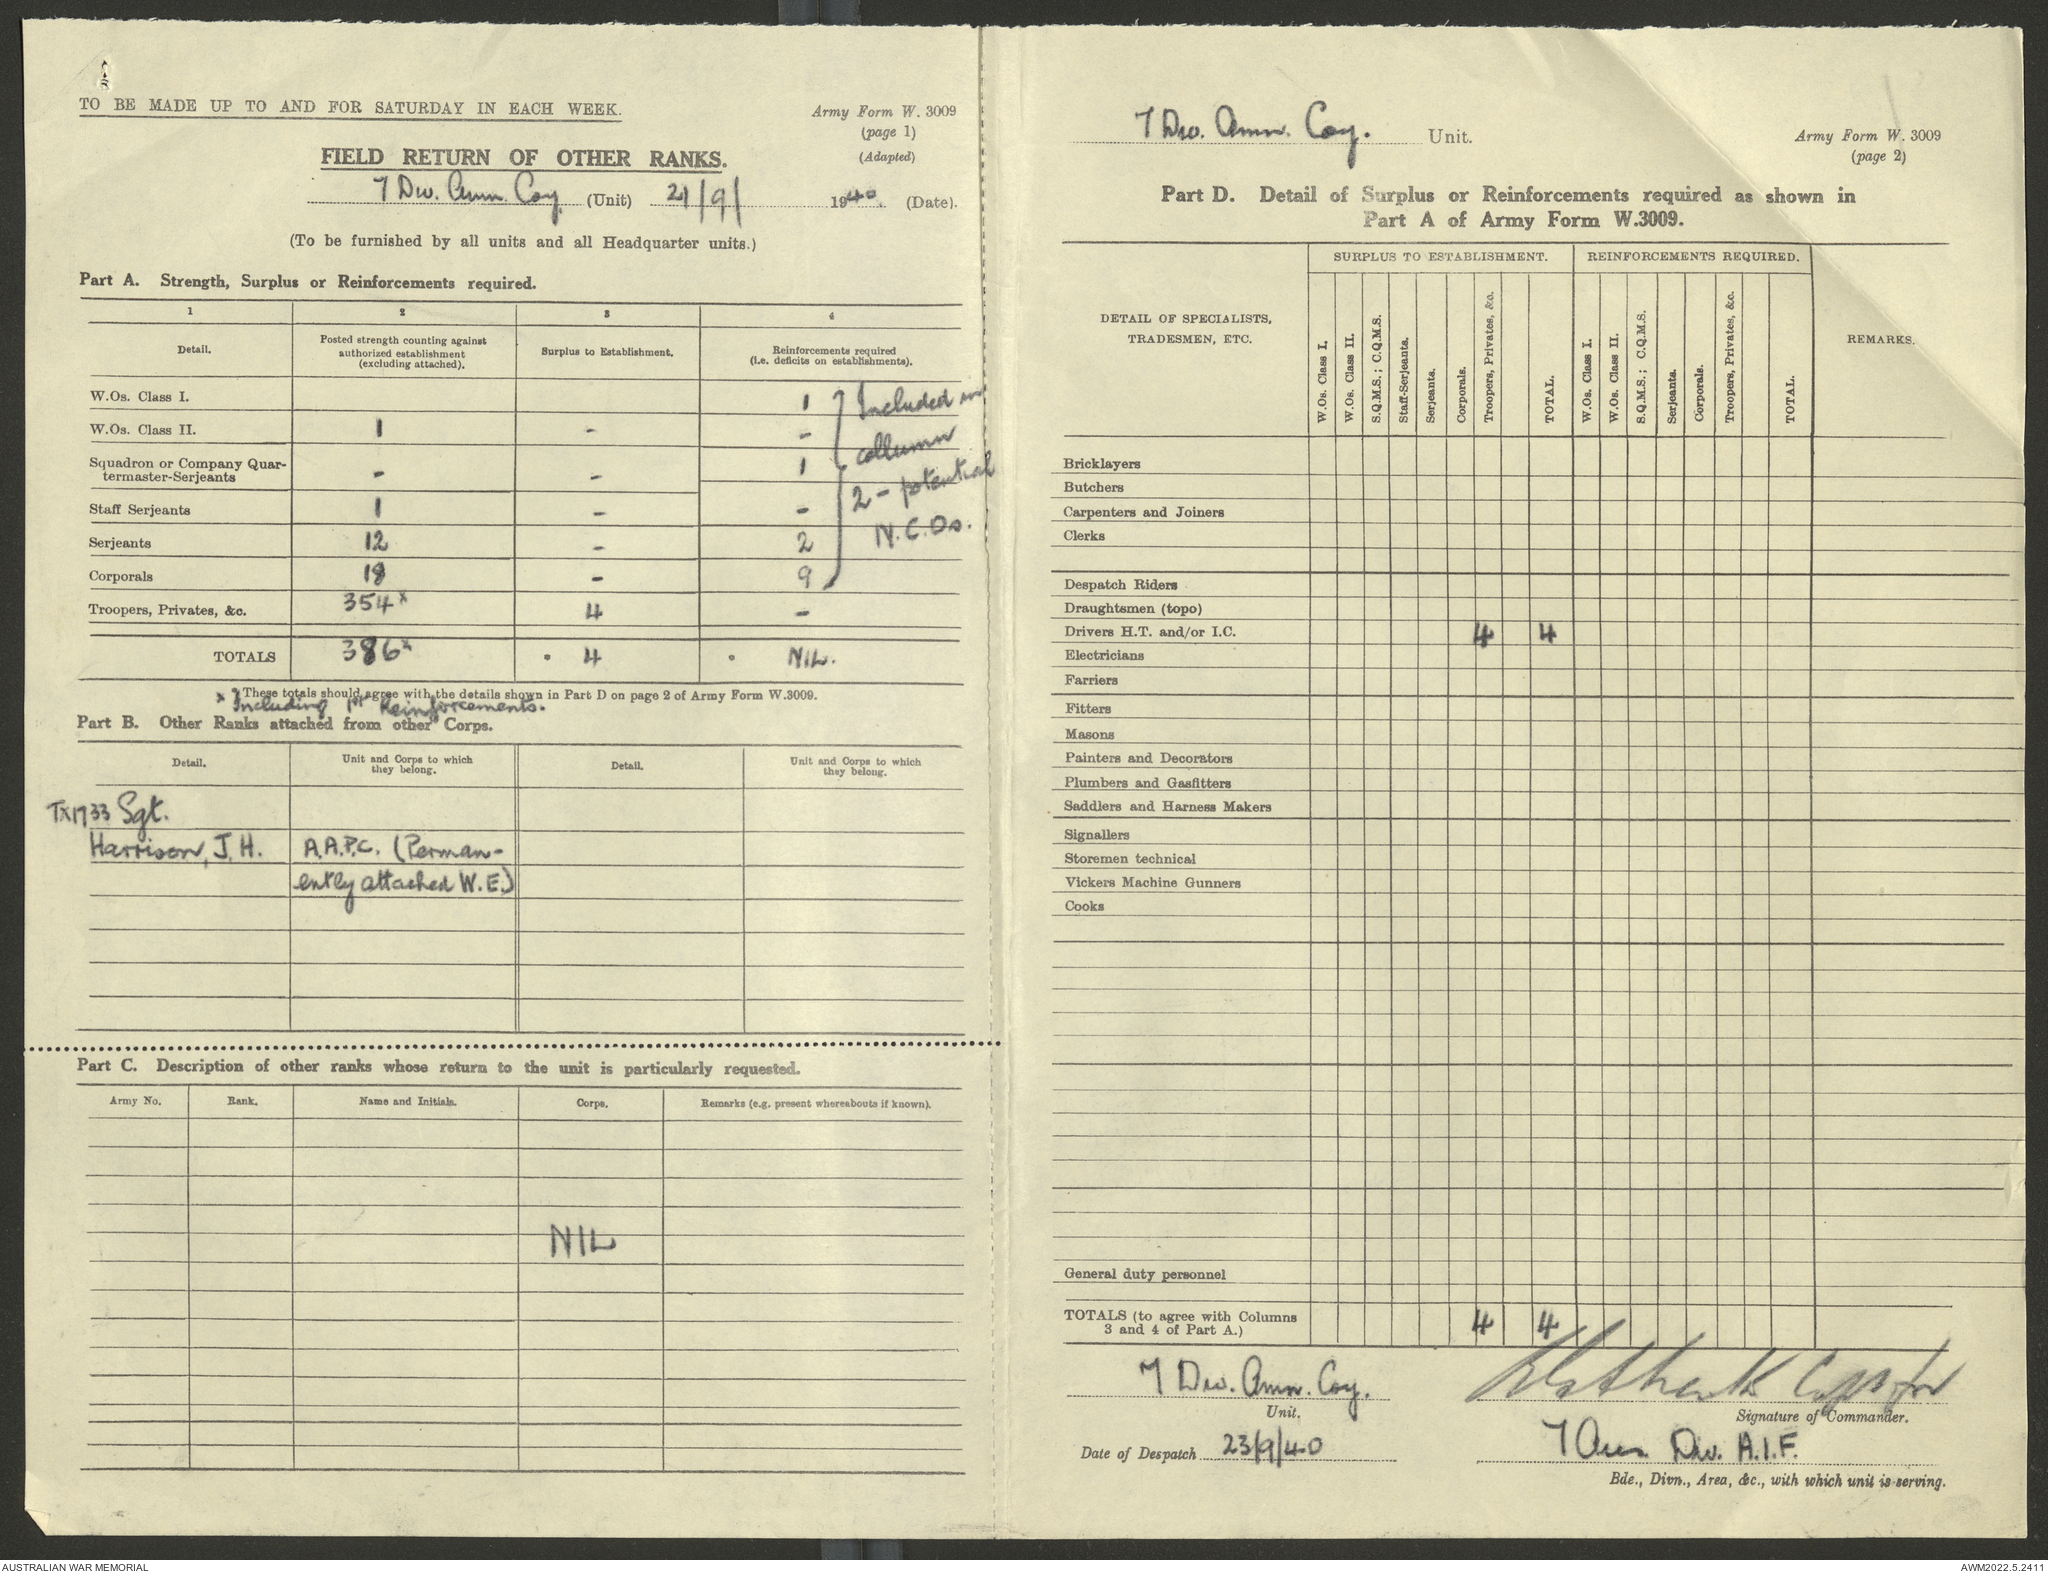 TO BE MADE UP TO AND FOR SATURDAY IN EACH WEEK.
Army Form W. 3009
(page 1)
(Adapted)
FIELD RETURN OF OTHER RANKS.
7 Div. Amn. Coy. (Unit) 21/9/ 1940. (Date).
(To be furnished by all units and all Headquarter units.)
Part A. Strength, Surplus or Reinforcements required.
1 2 3 4
Detail. Posted strength counting against authorized establishment (excluding attached). Surplus to Establishment. Reinforcements required (i.e. deficits on establishments).
W.Os. Class I. 1
W.Os. Class II. 1 - -
Squadron or Company Quar-
termaster-Serjeants - - 1
Staff Serjeants 1 - -
Serjeants 12 - 2
Corporals 18 - 9
Included in
collumn
2 - potential
N.C.Os.
Troopers, Privates, &c. 354x 4 -
TOTALS 386x 4 NIL.
x * These totals should agree with the details shown in Part D on page 2 of Army Form W.3009.
Including 1st Reinforcements.
Part B. Other Ranks attached from other Corps.
Detail. Unit and Corps to which they belong. Detail. Unit and Corps to which they belong.
TX1733 Sgt.
Harrison, J.H. A.A.P.C. (Perman-
ently attached W.E.)
Part C. Description of other ranks whose return to the unit is particularly requested.
Army No. Rank. Name and Initials. Corps. Remarks (e.g. present whereabouts if known).
NIL
7 Div. Amn. Coy. Unit.
Army Form W. 3009
(page 2)
Part D. Detail of Surplus or Reinforcements required as shown in
Part A of Army Form W.3009.
SURPLUS TO ESTABLISHMENT. REINFORCEMENTS REQUIRED.
DETAIL OF SPECIALISTS,
TRADESMEN, ETC.
W.Os. Class I.
W.Os. Class II.
S.Q.M.S.; C.Q.M.S.
Staff-Serjeants.
Serjeants.
Corporals.
Troopers, Privates, &c.
TOTAL.
W.Os. Class I.
W.Os. Class II.
S.Q.M.S.; C.Q.M.S.
Serjeants.
Corporals.
Troopers, Privates, &c.
TOTAL.
REMARKS.
Bricklayers
Butchers
Carpenters and Joiners
Clerks
Despatch Riders
Draughtsmen (topo)
Drivers H.T. and/or I.C. 4 4
Electricians
Farriers
Fitters
Masons
Painters and Decorators
Plumbers and Gasfitters
Saddlers and Harness Makers
Signallers
Storemen technical
Vickers Machine Gunners
Cooks
General duty personnel
TOTALS (to agree with Columns
3 and 4 of Part A.) 4 4
7 Div. Amn. Coy.
Unit.
Capt for
Signature of Commander.
Date of Despatch 23/9/40
7 Aus. Div. A.I.F.
Bde., Divn., Area, &c., with which unit is serving.
AUSTRALIAN WAR MEMORIAL
AWM2022.5.2411